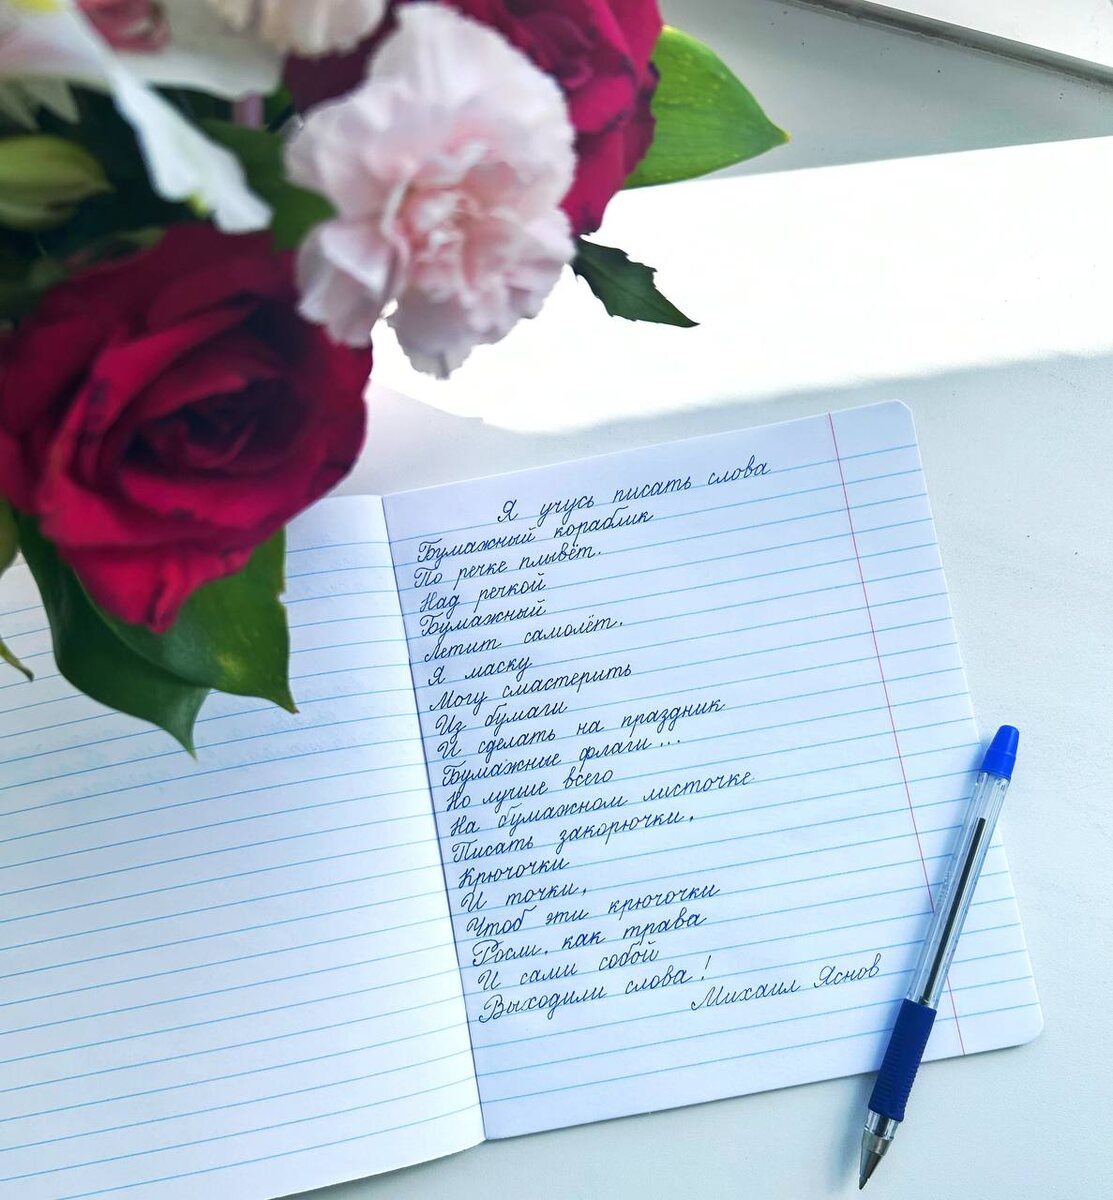 Я учусь писать слова
Бумажный кораблик
По речке плывёт.
Над речкой
Бумажный
Летит самолёт.
Я маску
Могу смастерить
Из бумаги
И сделать на праздник
Бумажные флаги...
Но лучше всего
На бумажном листочке
Писать закорючки,
Крючочки
И точки,
Чтоб эти крючочки
Росли, как трава
И сами собой
Выходили слова!
Михаил Яснов